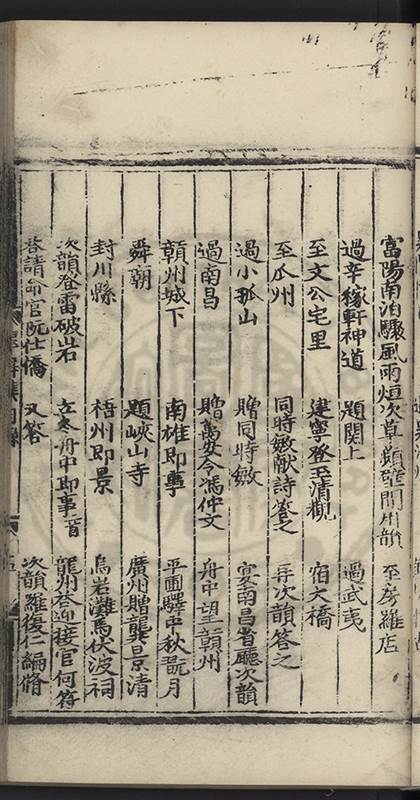 富陽南泊驟風雨烜次草顛韻 至房羅店
過辛稼軒神道 題関上 過武夷
至文公宅里 建寧登玉清觀 宿大橋
至瓜州 同時敏献詩答之 再次韻答之
過小孤山 贈同時敏 宴南昌省廳次韻
過南昌 贈萬安令馮仲文 舟中望贑州
贑州城下 南雄即事 平圃驛中秋翫月
舜廟 題峽山寺 廣州贈龔景清
封川縣 梧州即景 烏岩灘馬伏波祠
次韻登雷破岩 立冬舟中即事二首 龍州答迎接官何符
荅請命官阮仕僑 又答 次韻羅復仁編脩